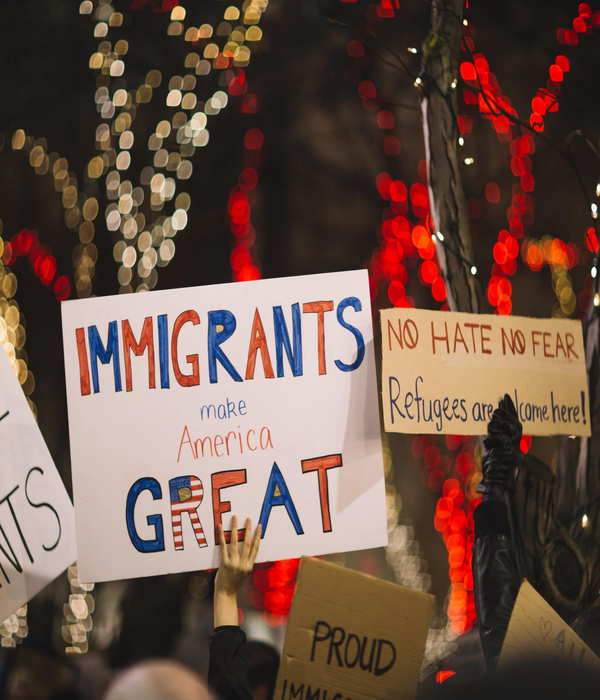 IMMIGRANTS
make
America
GREAT
NO HATE NO FEAR
Refugees are lcome here!
NTS
PROUD